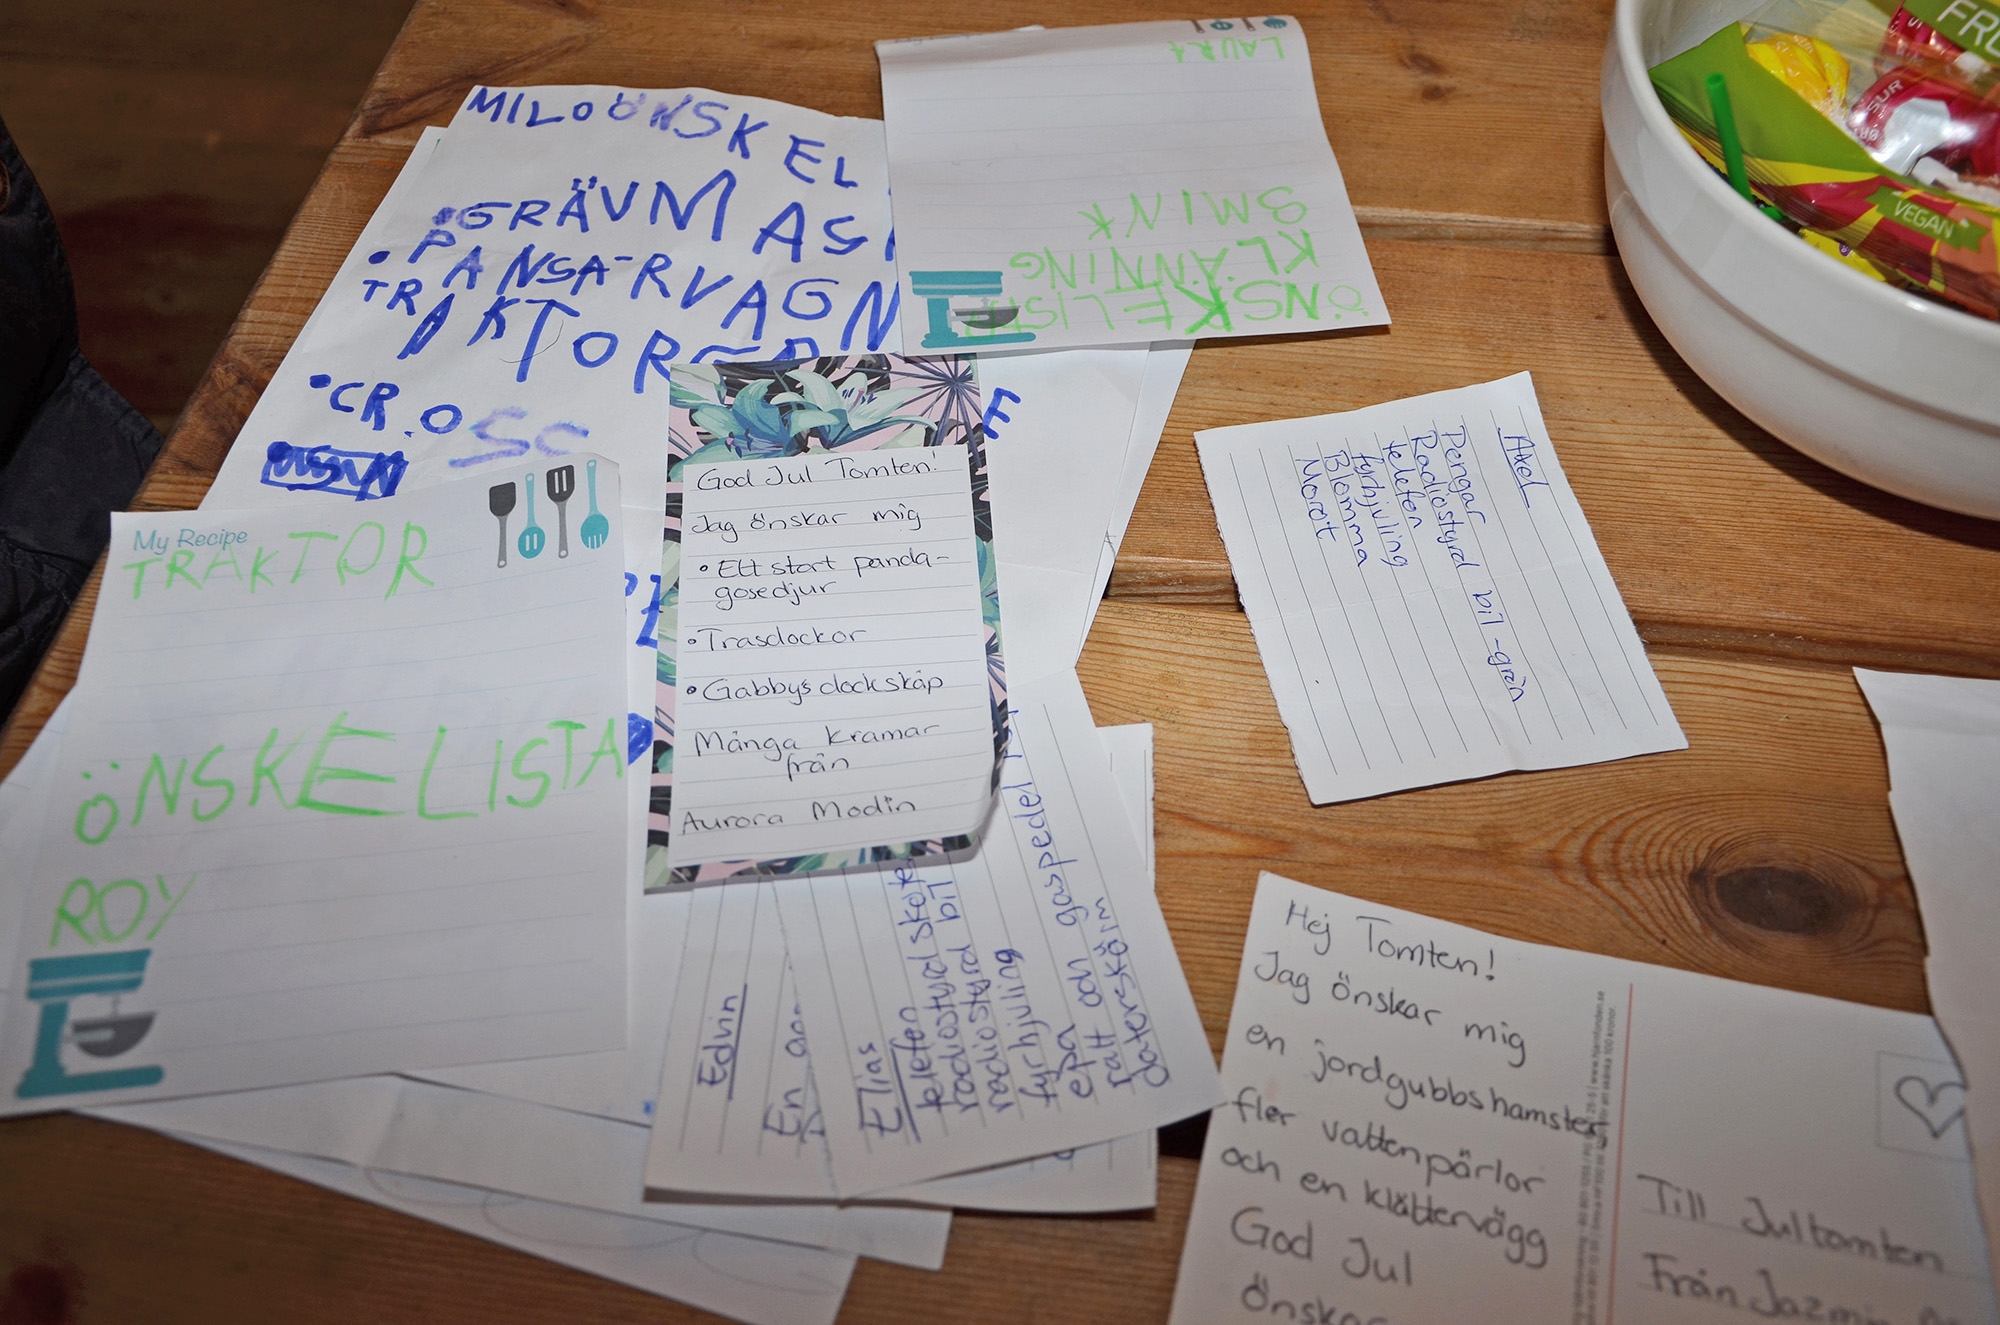 MILO ÖNSKEL
GRÄVMAS
PANSARVAGN
TRAKTORER
CROSS
LAURA
SMINK
KLÄNNING
ÖNSKELISTA
My Recipe
TRAKTOR
ÖNSKELISTA
ROY
God Jul Tomten!
Jag önskar mig
• Ett stort panda-
gosedjur
• Trasdockor
• Gabbys dockskåp
Många kramar
från
Aurora Modin
Axel
Pengar
Radiostyrd bil - grön
telefon
fyrhjuling
Blomma
Morot
Edvin
En
Elias
telefon
radiostyrd skote
radiostyrd bil
fyrhjuling
epa
ratt och gaspedel
Hej Tomten!
Jag önskar mig
en jordgubbshamster
fler vattenpärlor
och en klättervägg
God Jul
önskar
Till Jultomten
Från Jazmin
FRU
SUR
VEGAN